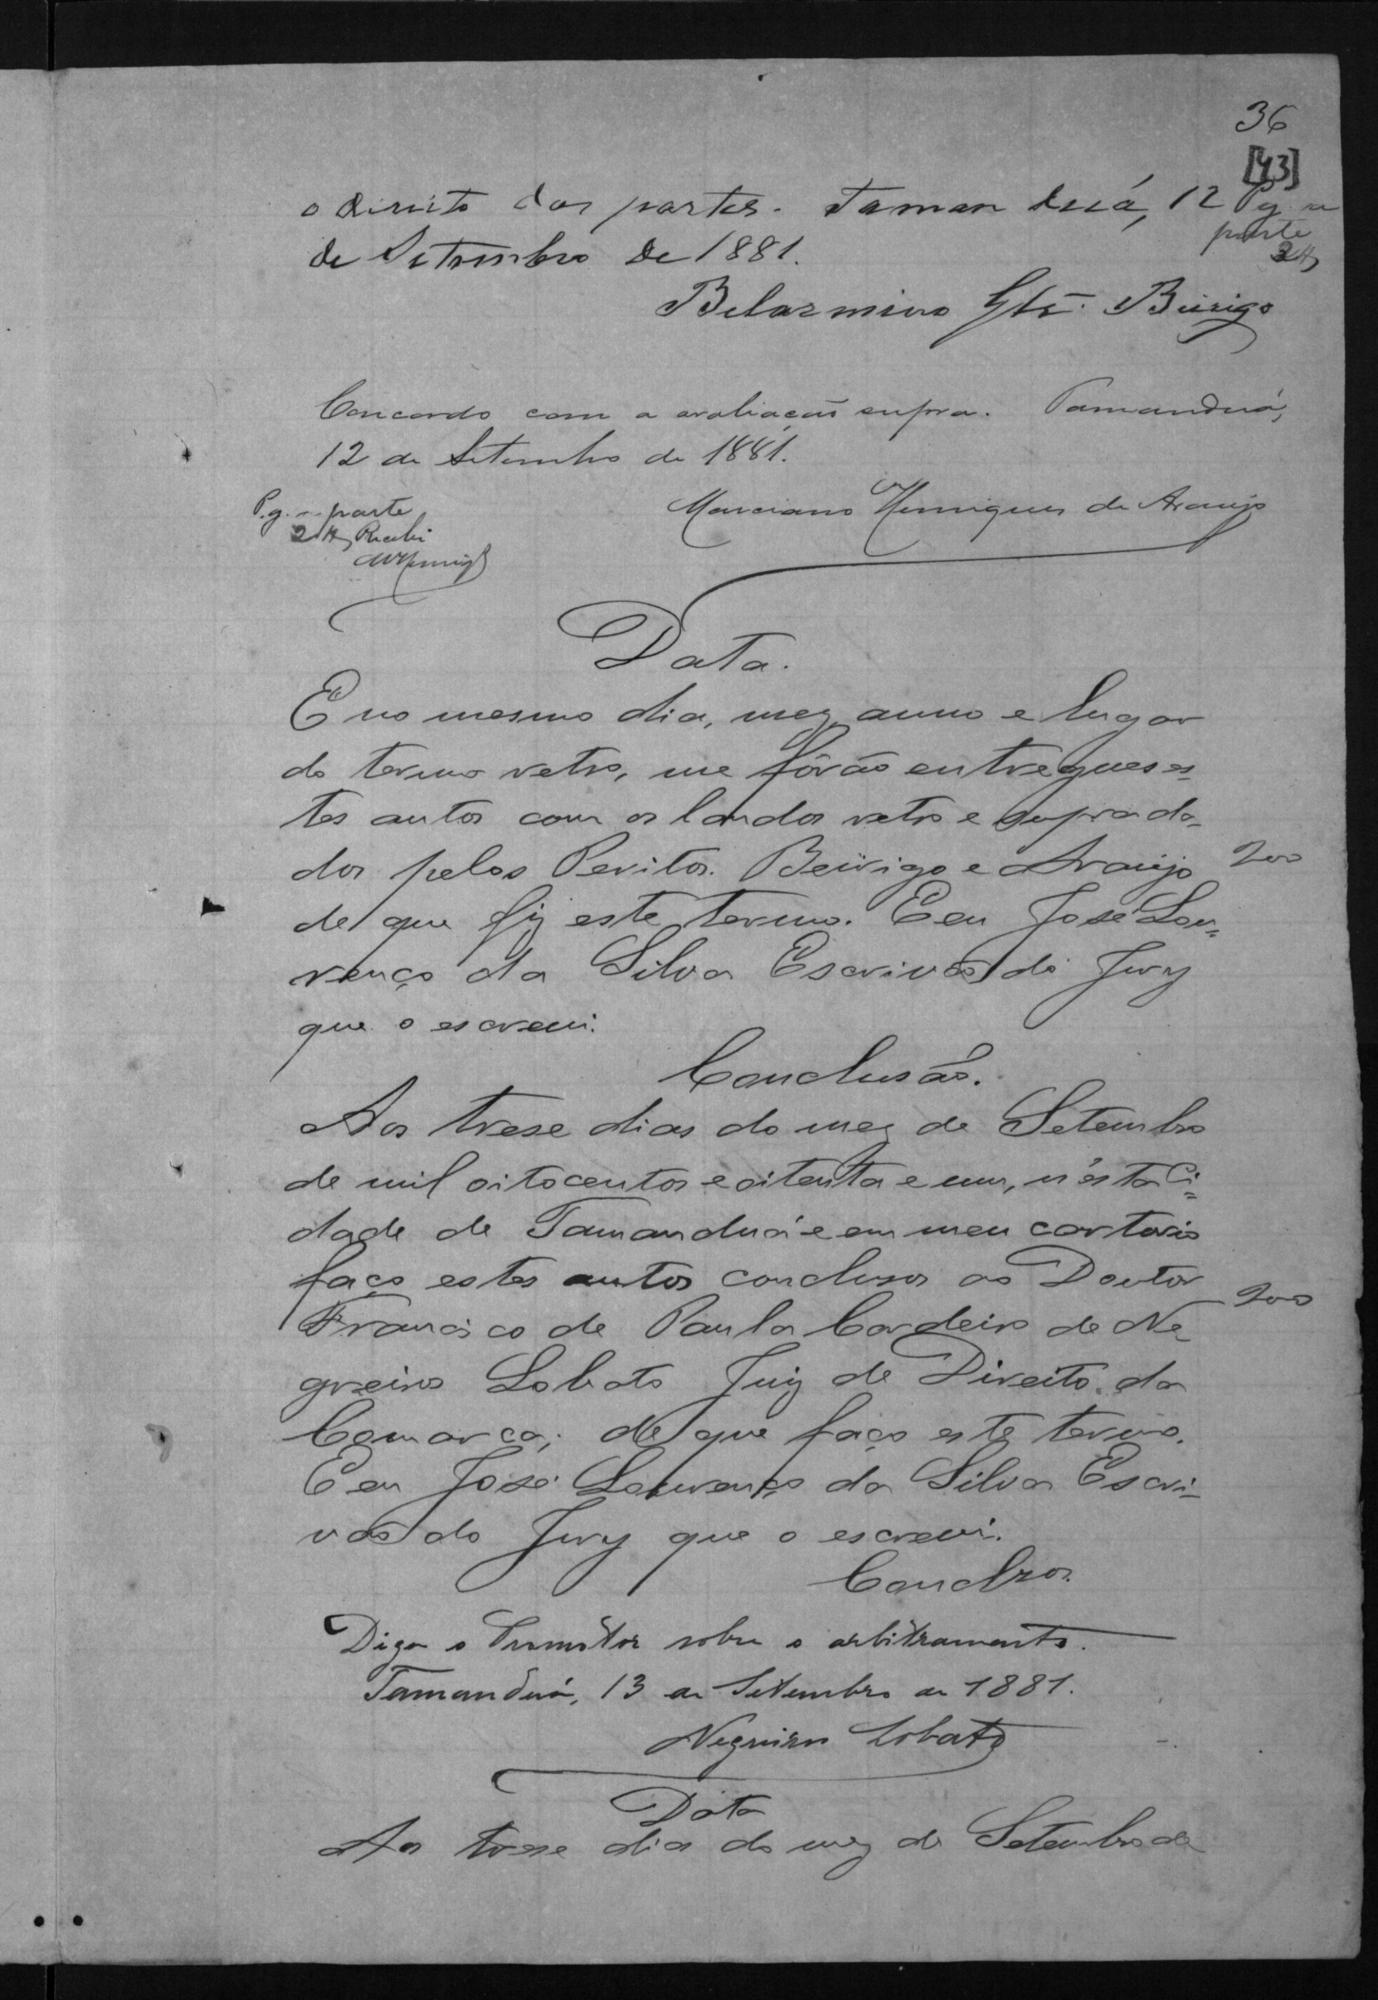 36
[43]
o direito das partes. Tamanduá, 12
Pg. a
parte
2$
de Setembro de 1881.
Belarmino Glz. Beirigo
Concordo com a avaliação supra. Tamanduá,
12 de Setembro de 1881.
Marciano Henriques de Araujo
P.g. a parte
2$ Recebi
MHenriq
Data.
E no mesmo dia, mez, anno e lugar
do termo retro, me fôrão entregues es=
tes autos com os laudos retro e supra da-
dos pelos Peritos. Beirigo e Araujo
200
de que fiz este termo. E eu José Lou=
renço da Silva Escrivão do Jury
que o escrevi.
Conclusão.
Aos trese dias do mez de Setembro
de mil oitocentos e oitenta e um, n'ésta Ci=
dade de Tamanduá e em meu cartorio
faço estes autos conclusos ao Doutor
200
Francisco de Paula Cordeiro de Ne
greiros Lobato Juiz de Direito da
Comarca; de que faço este termo.
E eu José Lourenço da Silva Escri=
vão do Jury que o escrevi.
Conclzos.
Diga o Promotor sobre o arbitramento.
Tamanduá, 13 de Setembro de 1881.
Negreiros Lobato
Data
Aos trese dias do mez de Setembro de